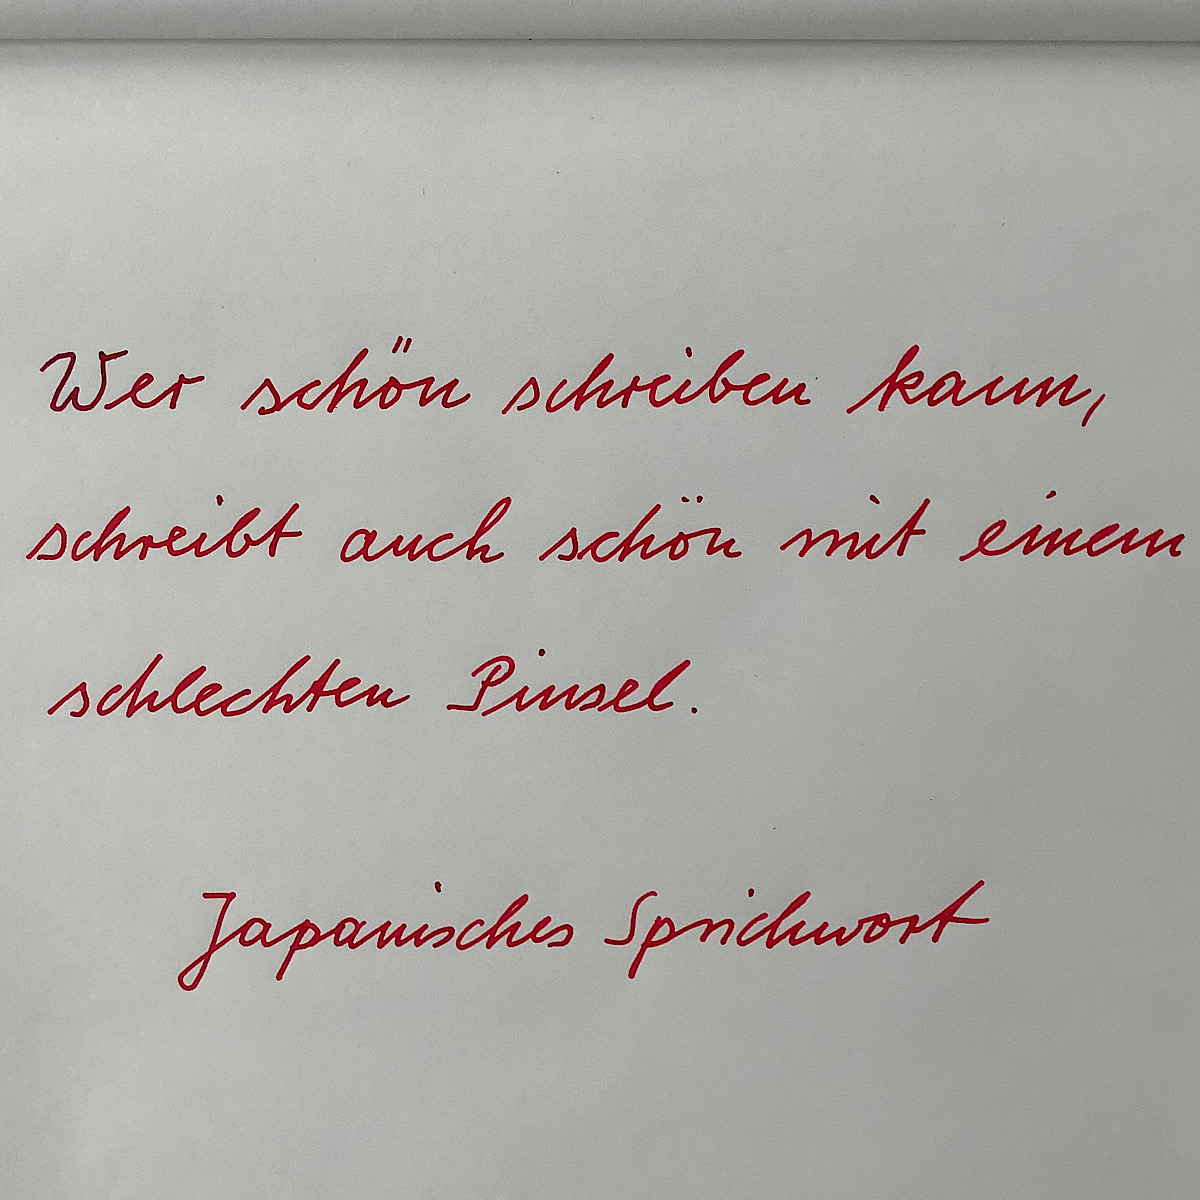 Wer schön schreiben kann,
schreibt auch schön mit einem
schlechten Pinsel.
Japanisches Sprichwort